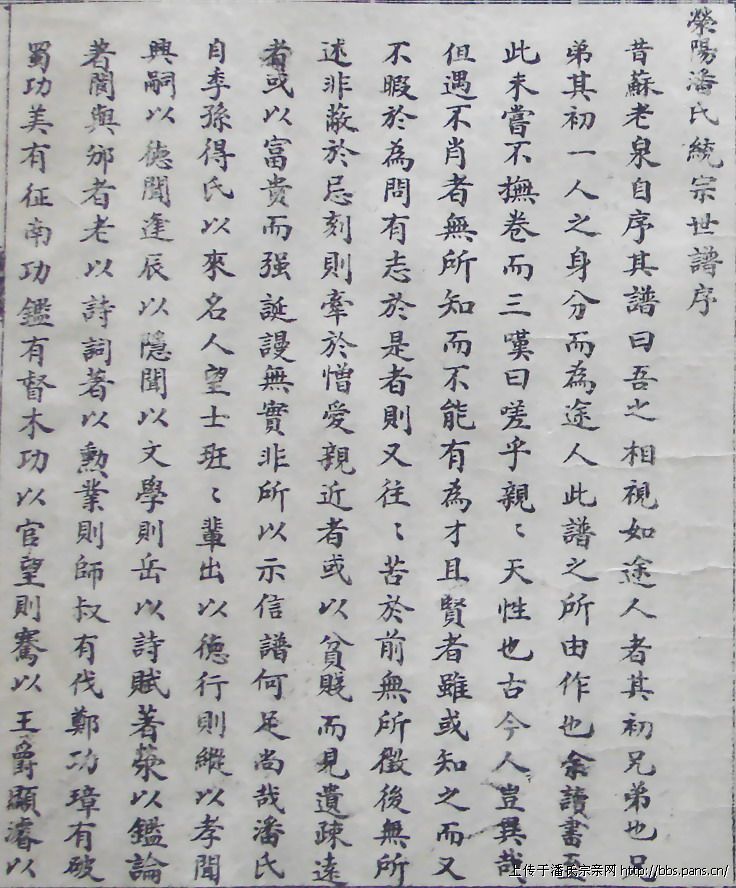 榮陽潘氏統宗世譜序
昔蘇老泉自序其譜曰吾之相視如途人者其初兄弟也兄
弟其初一人之身分而為途人此譜之所由作也余讀書至
此未嘗不撫卷而三嘆曰嗟乎親〻天性也古今人豈異哉
但遇不肖者無所知而不能有為才且賢者雖或知之而又
不暇於為問有志於是者則又往〻苦於前無所徵後無所
述非蔽於忌刻則牽於憎愛親近者或以貧賤而見遺疎遠
者或以富貴而强誕謾無實非所以示信譜何足尚哉潘氏
自季孫得氏以來名人望士班〻輩出以德行則縱以孝聞
興嗣以德聞逢辰以隱聞以文學則岳以詩賦著蒙以鑑論
著閬與邠者老以詩詞著以勲業則師叔有伐鄭功璋有破
蜀功美有征南功鑑有督木功以官望則騫以王爵顯濬以
上传于潘氏宗亲网 http://bbs.pans.cn/